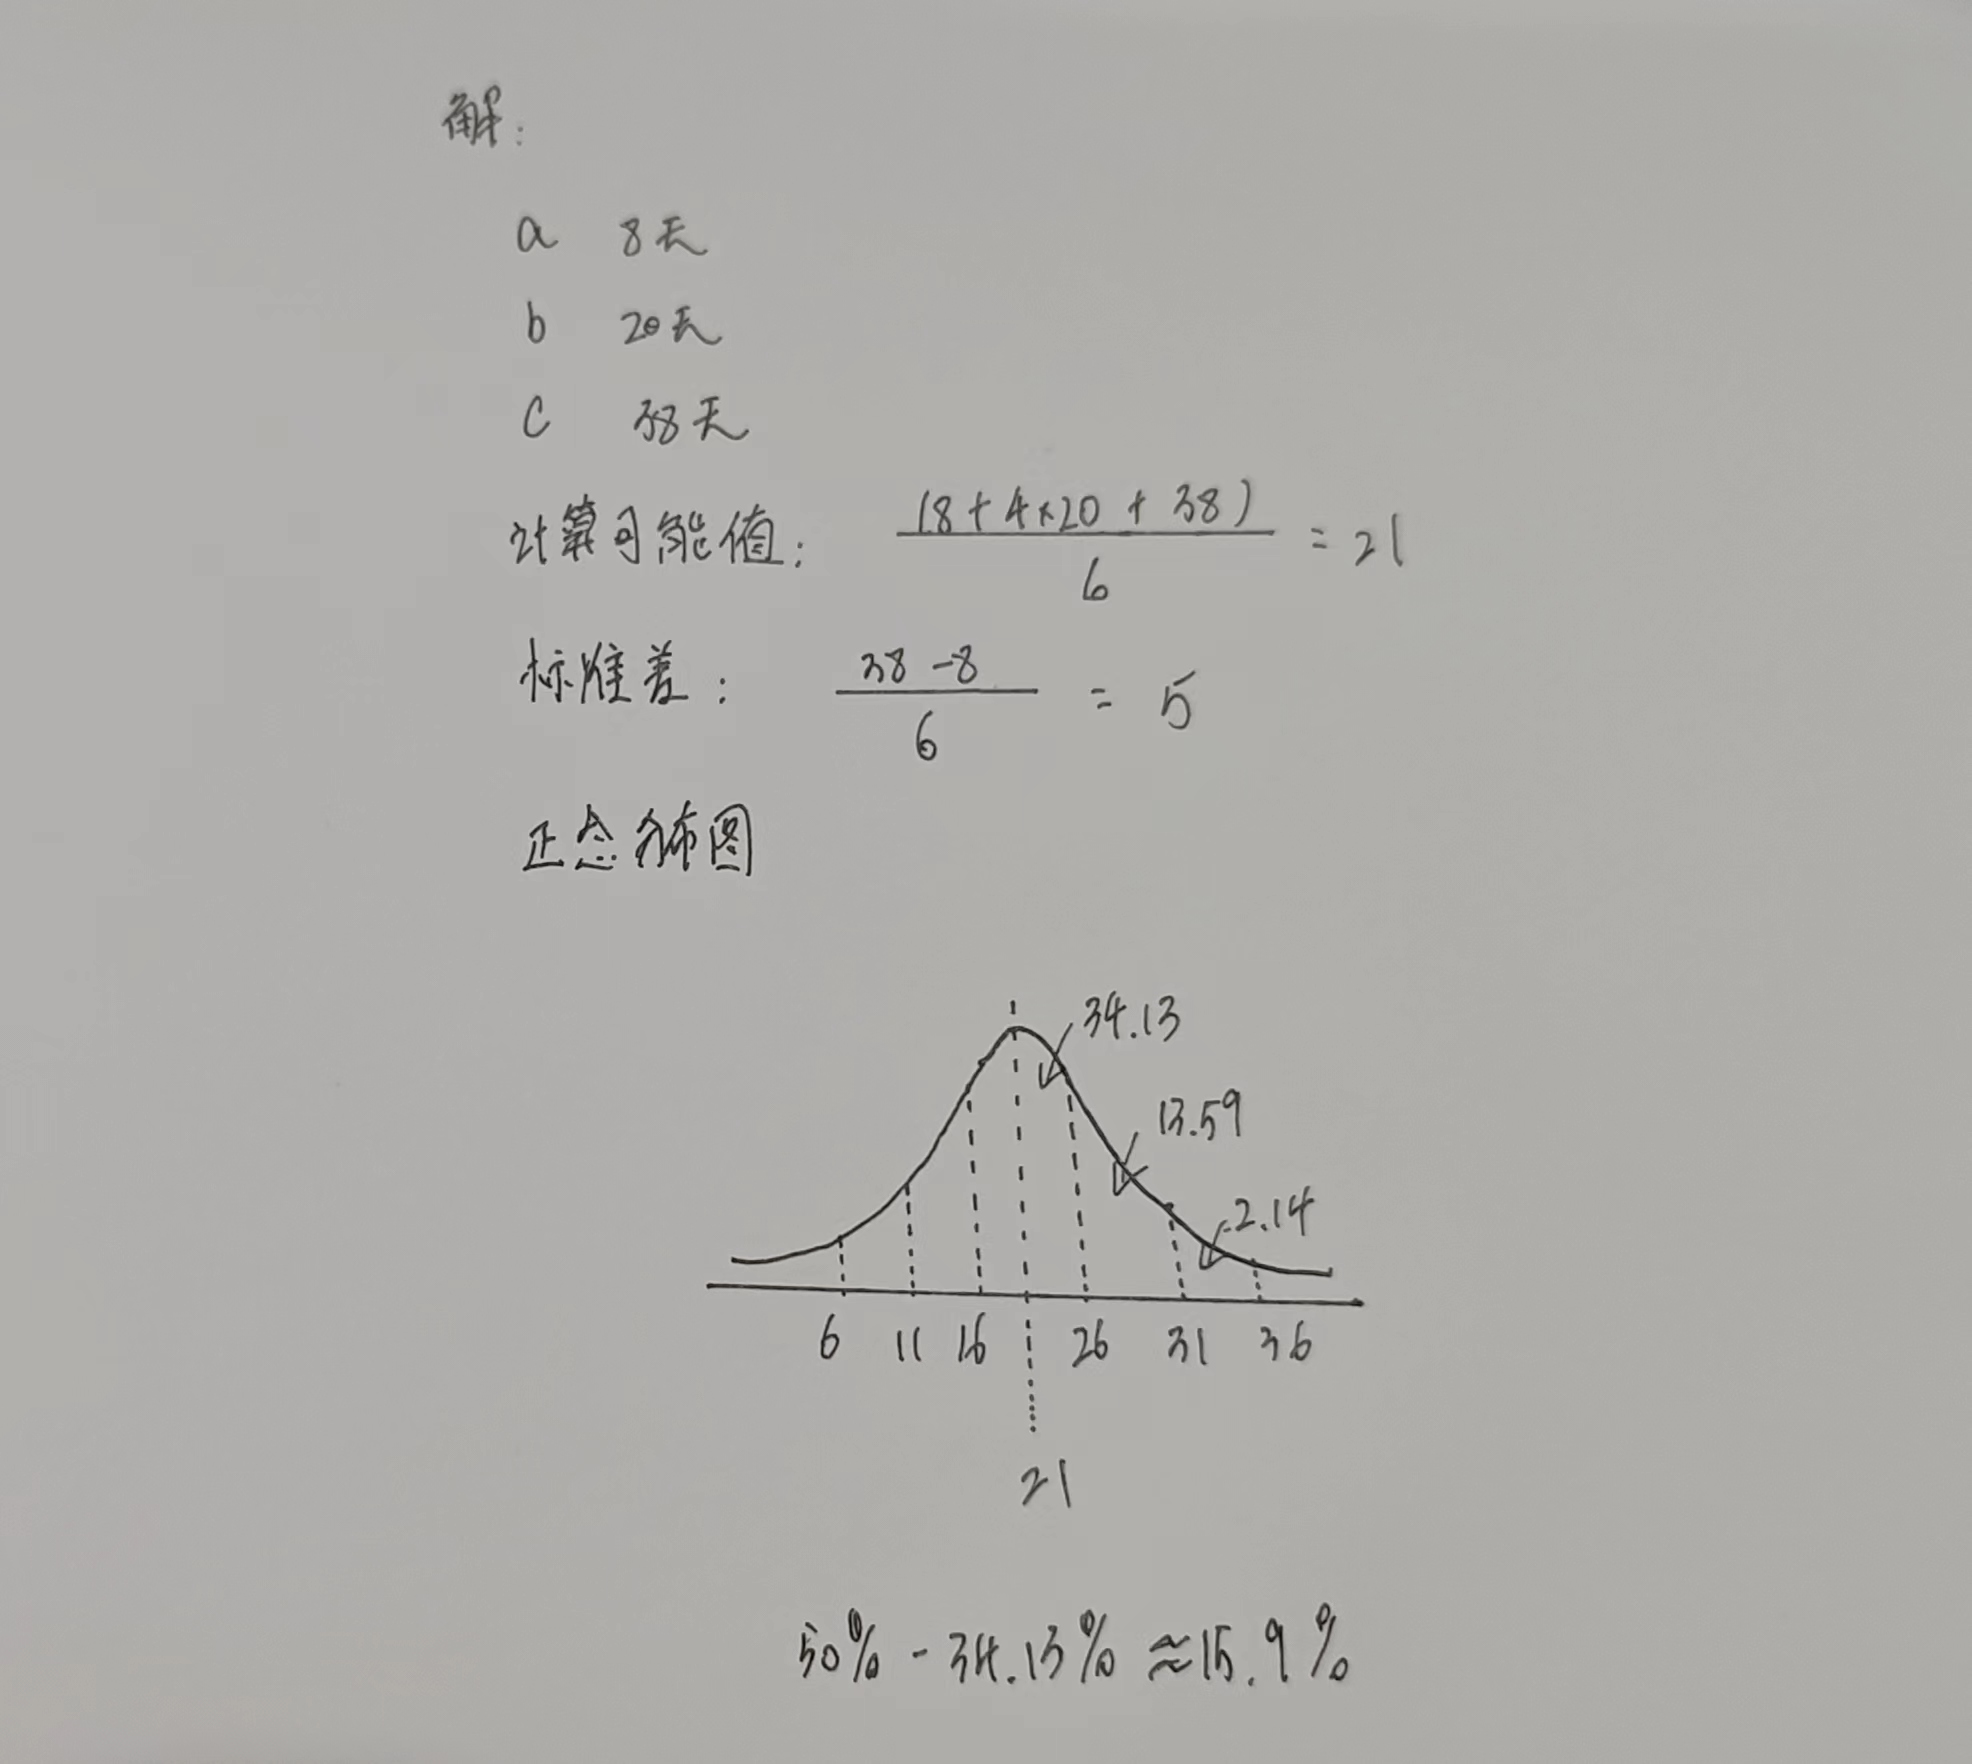 解:
a 8天
b 20天
c 38天
计算可能值: (8+4×20+38)/6 = 21
标准差: 38-8/6 = 5
正态分布图
34.13
13.59
2.14
6 11 16 26 31 36
21
50% - 34.13% ≈ 15.9%